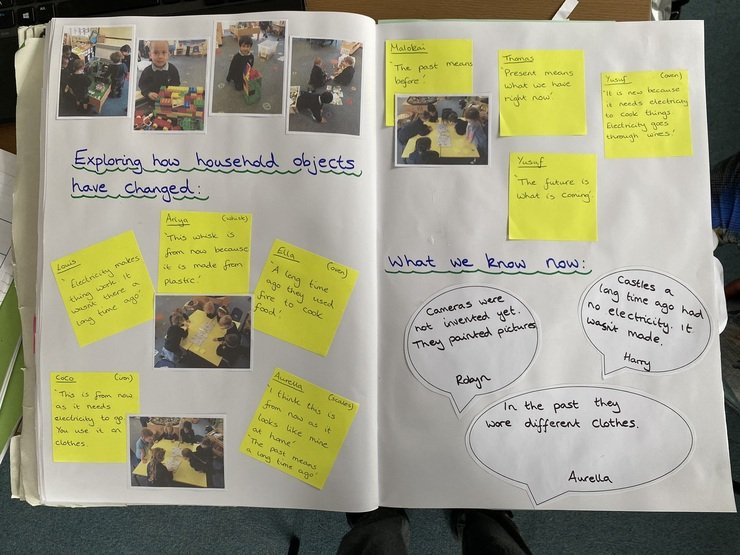 Exploring how household objects
have changed:
Ariya (whisk)
'This whisk is
from now because
it is made from
plastic.'
Louis
'Electricity makes
thing work it
wasnt there a
long time ago'
Ella (oven)
'A long time
ago they used
fire to cook
food.'
Coco (iron)
'This is from now
as it needs
electricity to go
You use it on
clothes.
Aurella (scales)
'I think this is
from now as it
looks like mine
at home'
'The past means
a long time ago'
Malokai
'The past means
before.'
Thomas
'Present means
what we have
right now'.
Yusuf (oven)
'It is new because
it needs electricity
to cook things.
Electricity goes
through wires.'
Yusuf
'The future is
what is coming'.
What we know now:
Cameras were
not invented yet.
They painted pictures
Robyn
Castles a
long time ago had
no electricity. It
wasn't made.
Harry
In the past they
wore different clothes.
Aurella